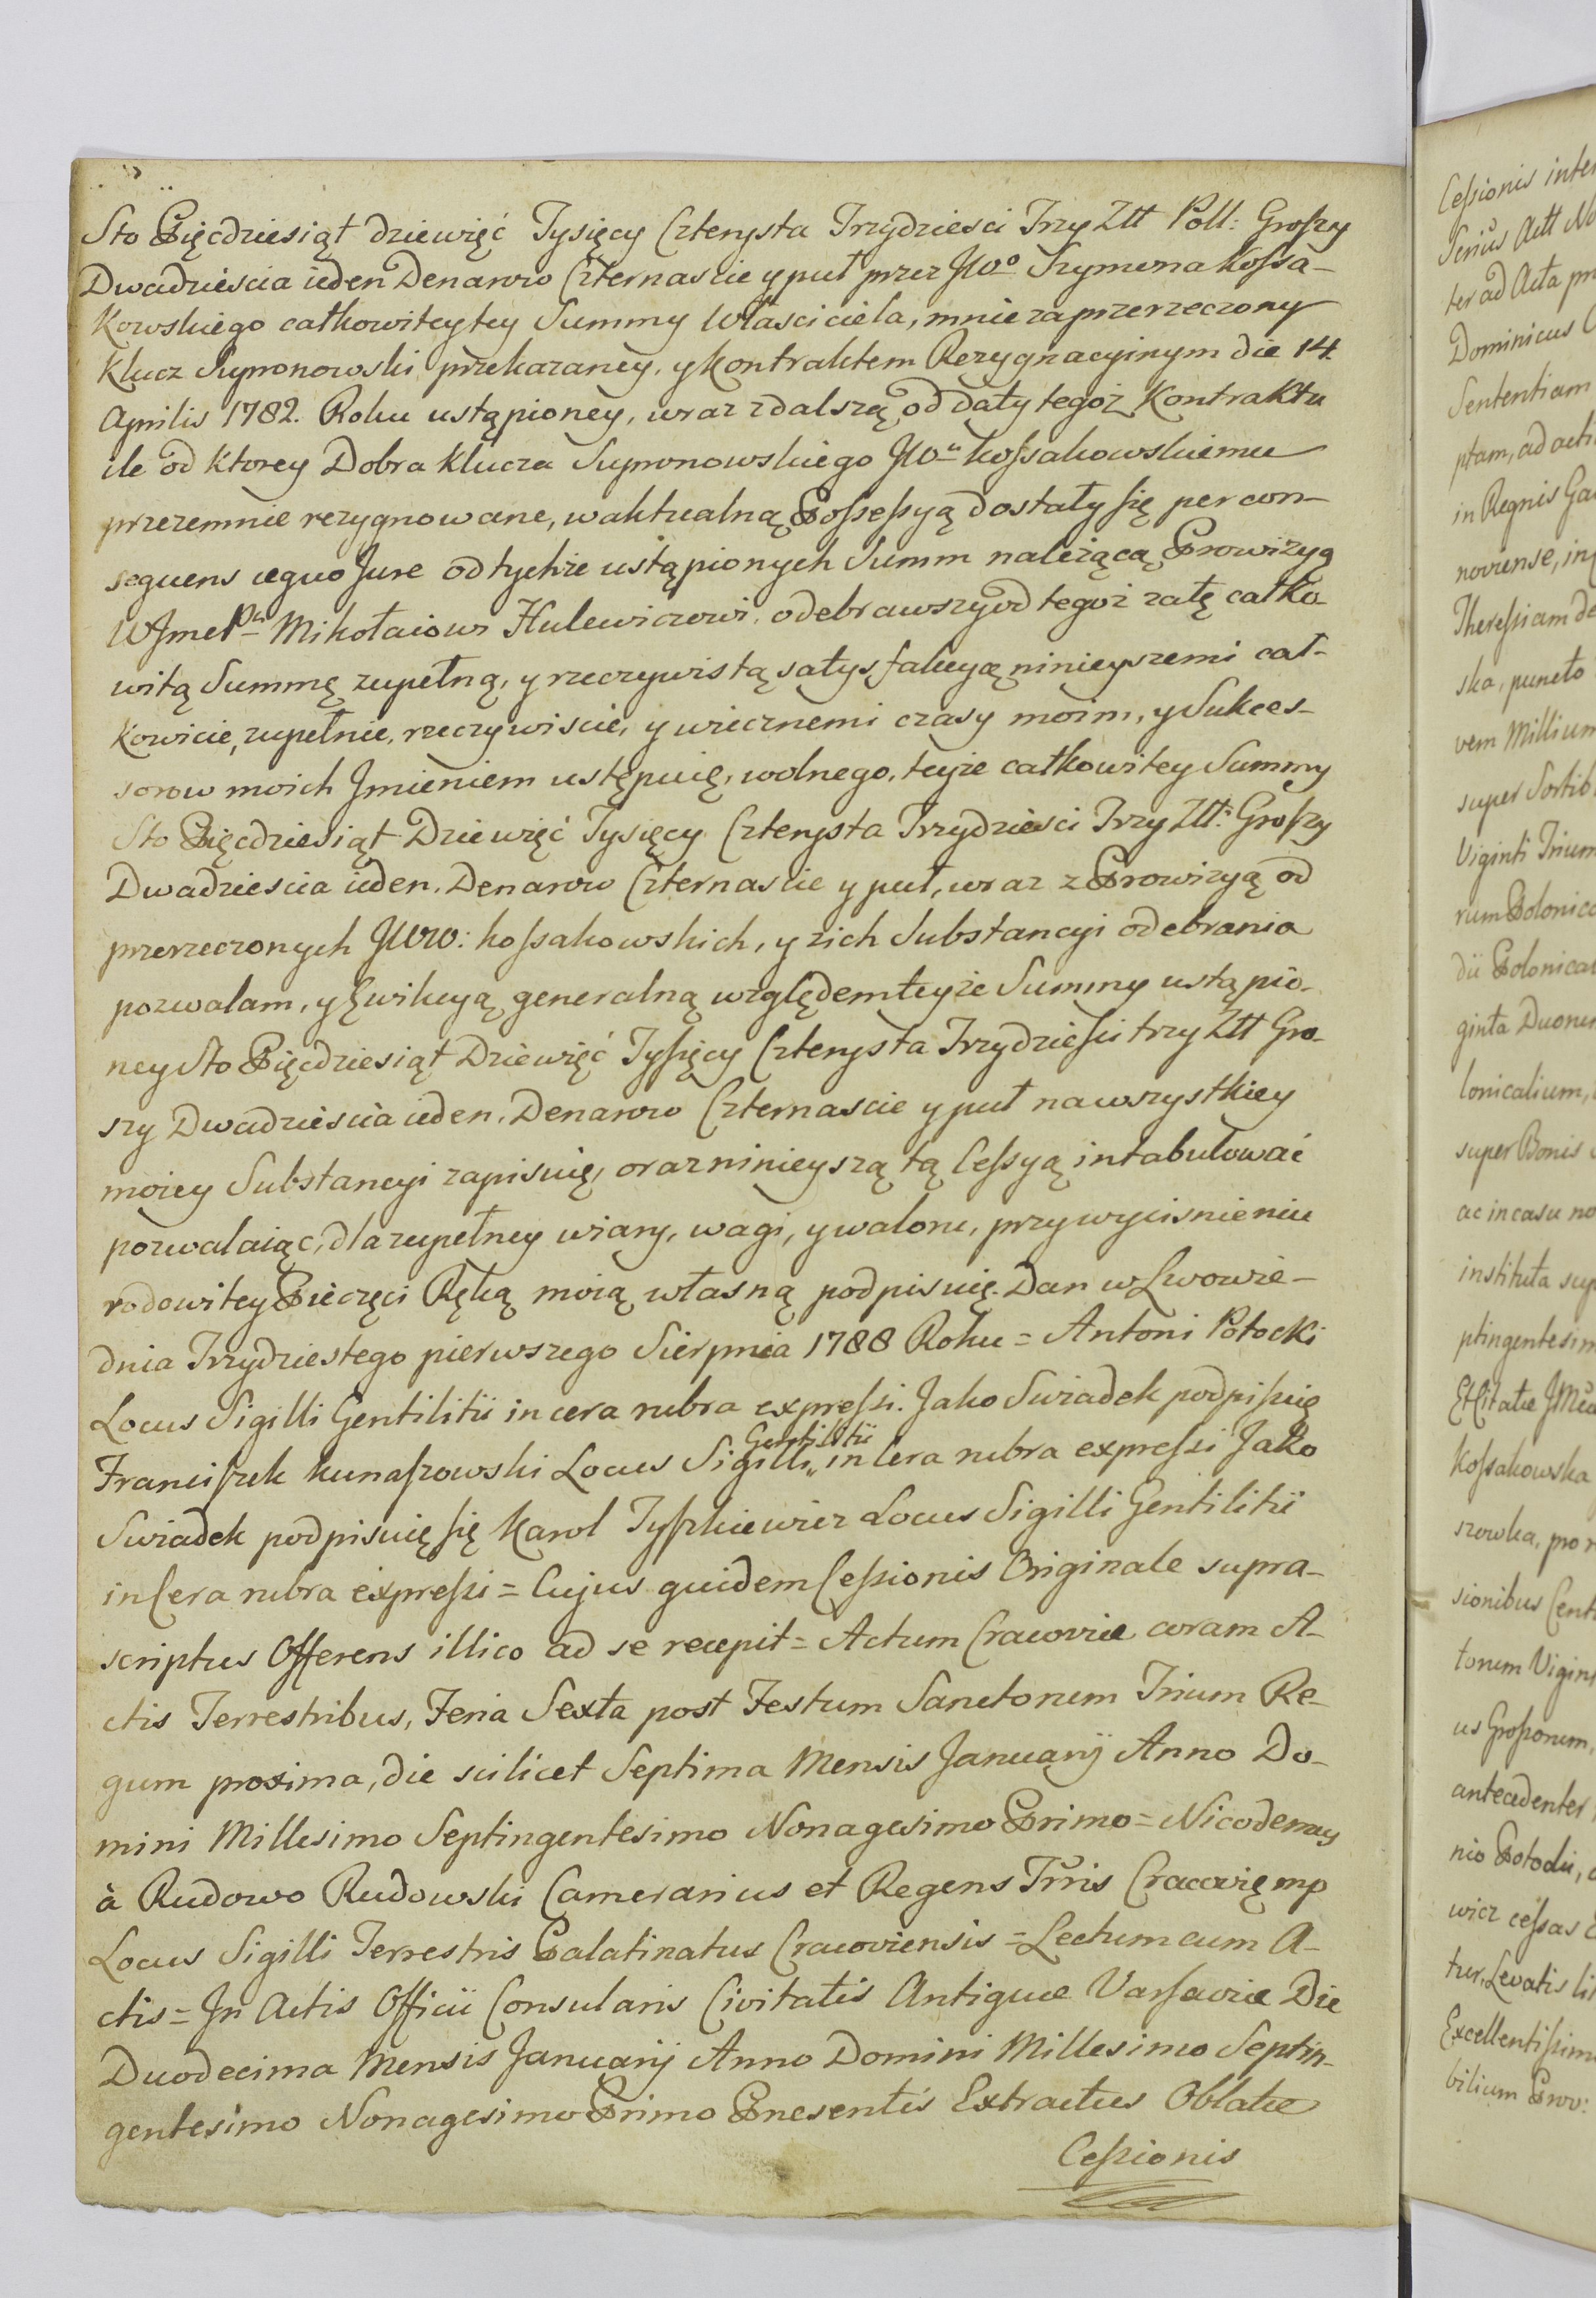 Sto Pięćdziesiąt dziewięć Tysięcy Czterysta Trzydziesci Trzy Złł Poll: Groszy
Dwadziescia ieden Denarow Czternascie y puł przez JWo Szymona Kossa-
kowskiego całkowitey tey Summy Własciciela, mnie za przerzeczony
Klucz Supronowski przekazaney, y Kontraktem Rezygnacyinym die 14.
Aprilis 1782. Roku ustąpioney, wraz z dalszą od daty tegoż Kontraktu
ile od ktorey Dobra Klucza Supronowskiego JWu Kossakowskiemu
przezemnie rezygnowane, w aktualną Possessyą dostały się per con-
sequens æquo Jure od tychże ustąpionych Summ należącą Prowizyą
WJmć Pu Mikołaiowi Hulewiczowi, odebrawszy od tegoż załę całko-
witą Summę zupełną, y rzeczywistą satysfakcyą ninieyszemi cał-
kowicie, zupełnie, rzeczywiscie, y wiecznemi czasy moim, y Sukces-
sorow moich Jmieniem ustępuię, wolnego, teyże całkowitey Summy
Sto Pięćdziesiąt Dziewięć Tysięcy Czterysta Trzydziesci Trzy Złł: Groszy
Dwadziescia ieden, Denarow Czternascie y puł, wraz z Prowizyą od
przerzeczonych JWW: Kossakowskich, y z ich Substancyi odebrania
pozwalam, y Ewikcyą generalną względem teyże Summy ustąpio-
ney Sto Pięćdziesiąt Dziewięć Tysięcy Czterysta Trzydziesci trzy Złł Gro-
szy Dwadziescia ieden, Denarow Czternascie y puł na wszystkiey
moiey Substancyi zapisuię, oraz ninieyszą tą Cessyą intabulować
pozwalaiąc, dla zupełney wiary, wagi, y waloru, przy wycisnieniu
rodowitey Pieczęci Ręką moią własną podpisuię. Dan w Lwowie -
dnia Trzydziestego pierwszego Sierpnia 1788 Roku = Antoni Potocki
Locus Sigilli Gentilitii in cera rubra expressi. Jako Swiadek podpisuię
Franciszek Kunaszowski Locus Sigilli Gentilitii in Cera rubra expressi Jako
Swiadek podpisuię się Karol Tyszkiewicz Locus Sigilli Gentilitii
in Cera rubra expressi = Cujus quidem Cessionis Originale supra-
scriptus Offerens illico ad se recepit = Actum Cracoviæ coram A-
ctis Terrestribus, Feria Sexta post Festum Sanctorum Trium Re-
gum proxima, die scilicet Septima Mensis Januarij Anno Do-
mini Millesimo Septingentesimo Nonagesimo Primo = Nicodemus
à Rudowo Rudowski Camerarius et Regens Trris Cracovię mp
Locus Sigilli Terrestris Palatinatus Cracoviensis = Lectum cum A-
ctis = In Actis Officii Consularis Civitatis Antiquæ Varsaviæ Die
Duodecima Mensis Januarij Anno Domini Millesimo Septin-
gentesimo Nonagesimo Primo Præsentis Extractus Oblatæ
Cessionis
Cessionis
Serius Actt
ter ad Acta
Dominicus
Sententiam
ptam, ad
in Regnis
noviense,
Theressiam
ska, puncto
vem Millium
super
Viginti Trium
rum
dii
ginta
lonicalium,
super Bonis
ac in casu
instituta
ptingentesim
Et Citatæ
Kossakowska
szowka, pro
sionibus
torum
us Grossorum,
antecedenter
nio Potocki,
wicz cessas
tur, Levatis
Excellentissim
bilium Prov: